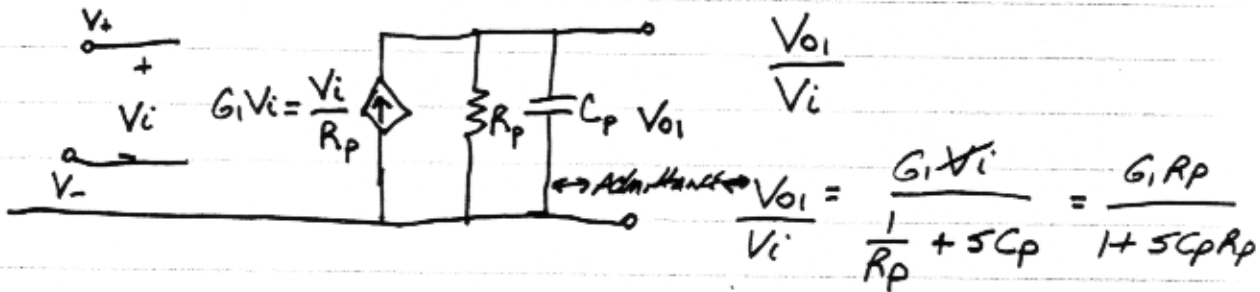 V+
+
Vi
-
V-
G₁Vi = Vi / Rp
Rp
Cp
Vo1
↔ Admittance ↔
Vo1 / Vi
Vo1 / Vi = G₁Vi / (1/Rp + sCp) = G₁Rp / (1 + sCpRp)